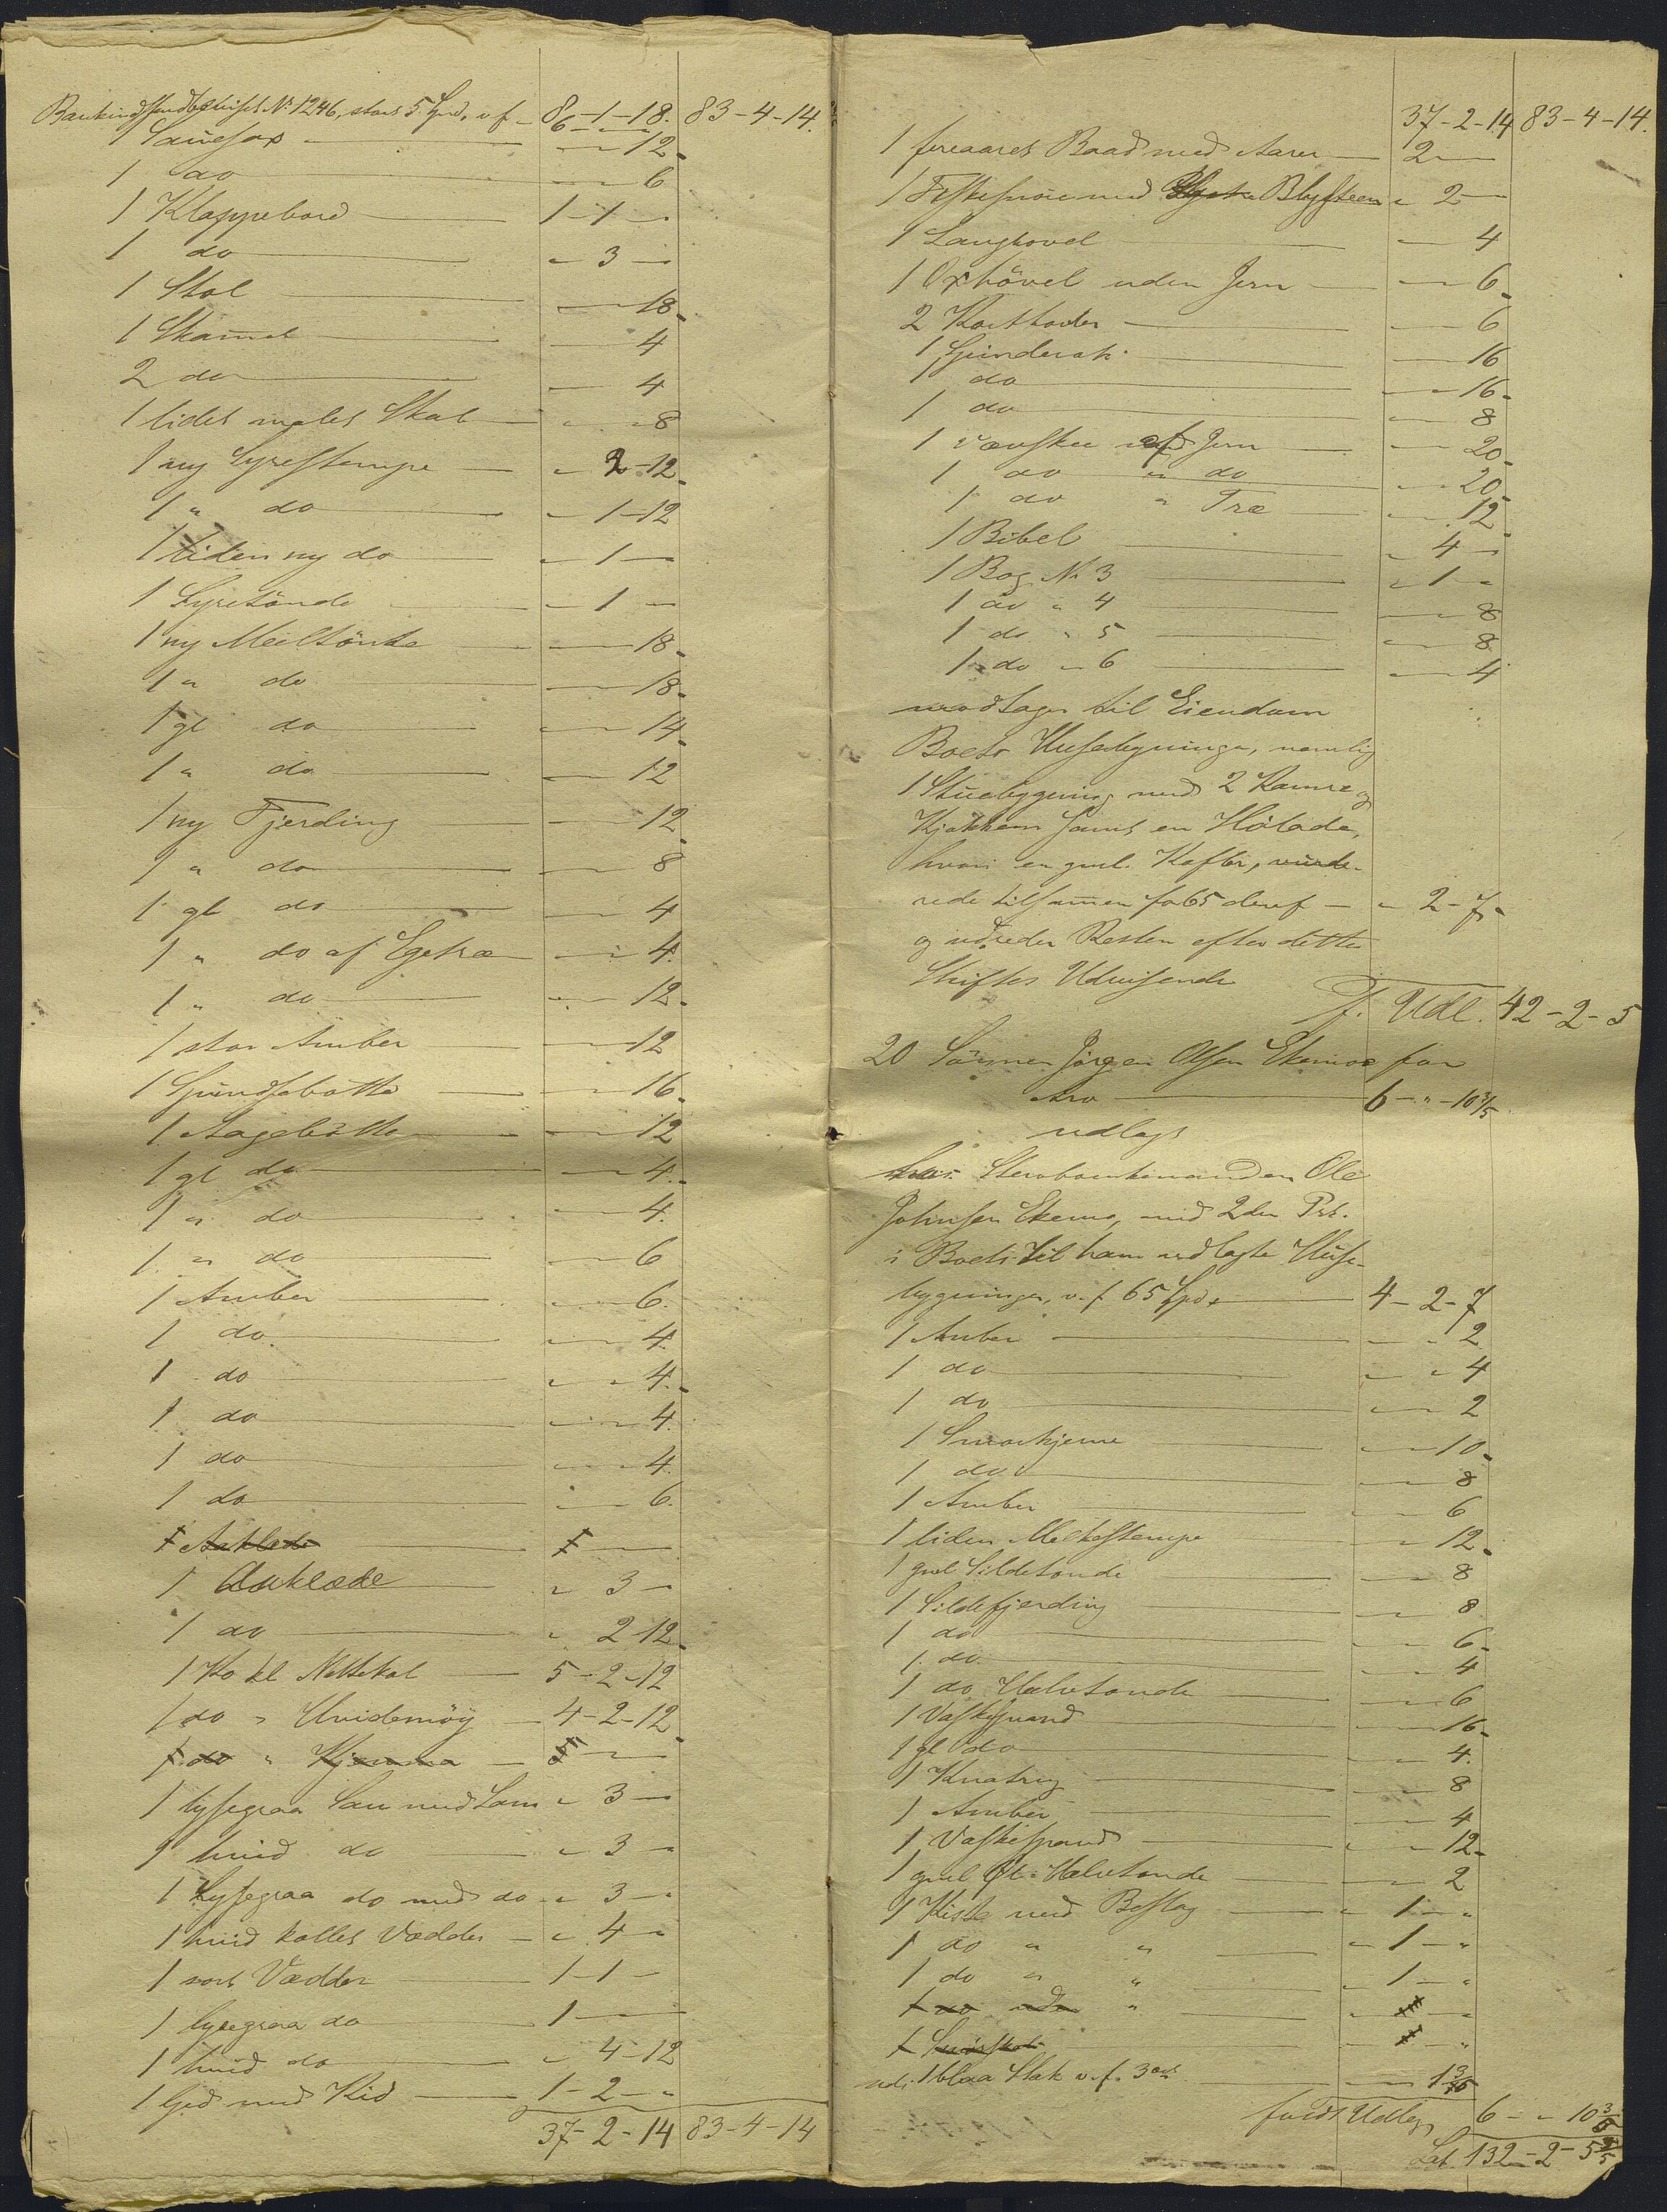 Bankindskudsbeviset No 1246, stort 5 Spd, v f - 8-1-18. 83-4-14.
1 Sauesax — 12
1 do — 6
1 Klappebord 1-1-
1 do " 3 -
1 Stol — 18
1 Skammel — 4
2 do — 4
1 lidet malet Skab " " 8
1 ny Syrestampe " 2-12
1 " do " 1-12
1 liden ny do " 1 -
1 Syretönde - 1 -
1 ny Meeltönde — 18
1 " do — 18
1 gl do — 14
1 " do — 12
1 ny Fjerding — 12
1 " do — 8
1 gl do — 4
1 " do af Egetræ — 4
1 " do — 12
1 stor Amber — 12
1 — 16
1 — 12
1 gl do — 4
1 " do — 4
1 " do — 6
1 Amber — 6
1 do — 4
1 do " " 4
1 do — 4
1 do — 4
1 do — 6
1 Aaklæde 1 —
1 Aaklæde " 3 -
1 do " 2-12
1 Ko kl 5-2-12
1 do " Hvidemöÿ 4-2-12
1 do " 5 —
1 lysegraa Sau med Lam " 3 -
1 hvid do " 3 -
1 Lysegraa do med do " 3 -
1 hvid kollet Vædder " 4 -
1 sort Vædder 1-1-
1 lysegraa do 1 —
1 hvid do " 4-12
1 Ged med Kid 1-2-"
37-2-14 83-4-14
37-2-14 83-4-14.
1 fireaaret Baad med Aarer 2 —
1 Fiskesnöre med Blysteen " 2 —
1 Langhovel — 4
1 Oxhövel uden Jern — 6
2 — 6
1 Spinderok — 16
1 do — 16
1 do — 8
1 af Jern — 20
1 do " do — 20
1 do " Træ — 12
1 Bibel " 4 -
1 Bog No 3 " 1 -
1 do " 4 — 8
1 do " 5 — 8
1 do " 6 — 4
modtager til Eiendom
Boets Husebygninger, nemlig
1 Stuebygning med 2 Kamre og
Kjøkken samt en Hölade,
hvori en gml. vurde-
rede tilsammen for 65 deraf — " 2-7
og udreder Resten efter dette
Skiftes Udvisende
T. Udl. 42-2-5
20 Sönnen Jörgen Olsen Ekemoe for
Arv — 6-"-10 3/5
udlagt
hos Sterboenkemanden Ole
Johnsen Ekemo, med 2den Prt.
i Boets til ham udlagte Huse-
bygninger, v. f 65 Spd, 4-2-7
1 Amber " " 2
1 do " " 4
1 do — 2
1 Smørkjerne — 10
1 do — 8
1 Amber " " 6
1 liden Melkestampe " 12
1 gml Sildetønde — 8
1 Sildefjerding — 8
1 do " 6
1 do " " 4
1 do Halvtønde — 6
1 Vaskespand — 16
1 gl do " " 4
1 — 8
1 Amber — 4
1 Vaskespand " " 12
1 gml Øl-Halvtønde — 2
1 Kiste med Beslag " 1 - "
1 do " " " 1 - "
1 do " " " 1 - "
1 do uden " " 1 - "
1 " 1 - "
udi 1 blaa Stak v. f. 3 ort — 1 3/5
fuldt Udlagt 6-"-10 3/5
Lat. 132-2-5 3/5